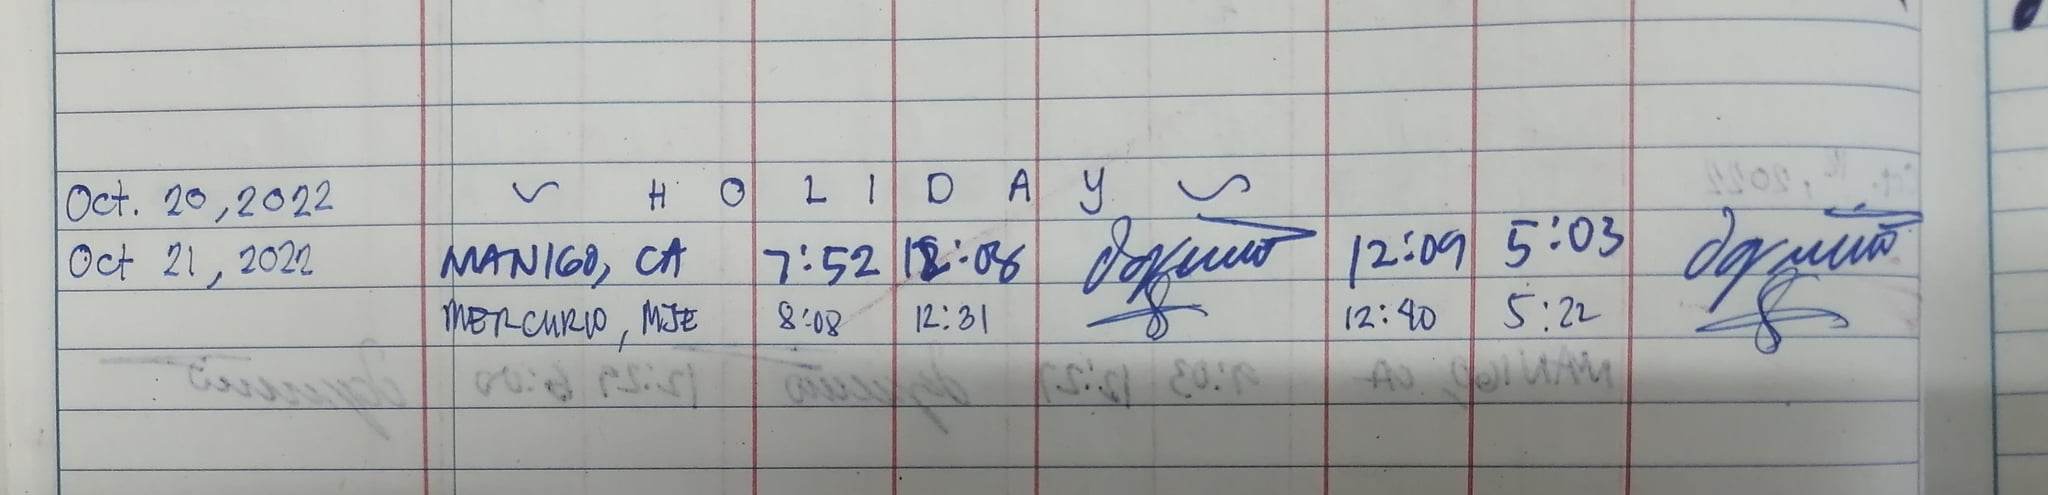 Oct. 20, 2022 ~ H O L I D A Y ~
Oct 21, 2022 MANIGO, CA 7:52 12:08 12:09 5:03
MERCURIO, MJE 8:08 12:31 12:40 5:22